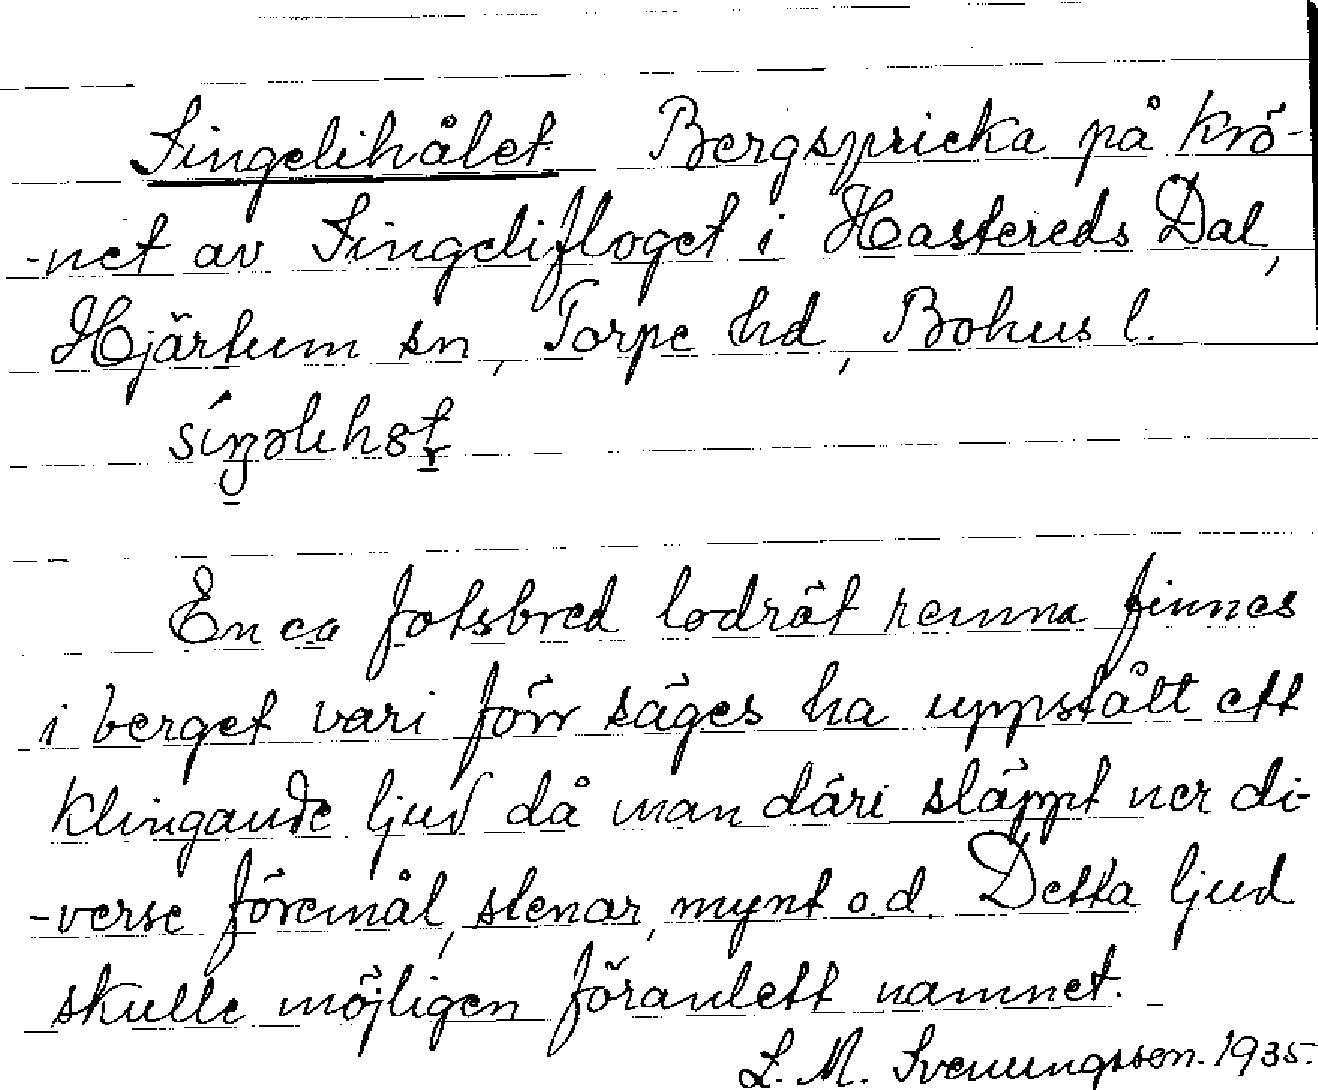 Singelihålet Bergspricka på krö-
-net av Singelifloget i Hastereds Dal,
Hjärtum sn, Torpe hd, Bohus l.
En ca fotsbred lodrät remna finnes
i berget vari förr säges ha uppstått ett
klingande ljud då man däri släppt ner di-
-verse föremål, stenar, mynt o.d. Detta ljud
skulle möjligen föranlett namnet.
L. M. Svenungsson. 1935.